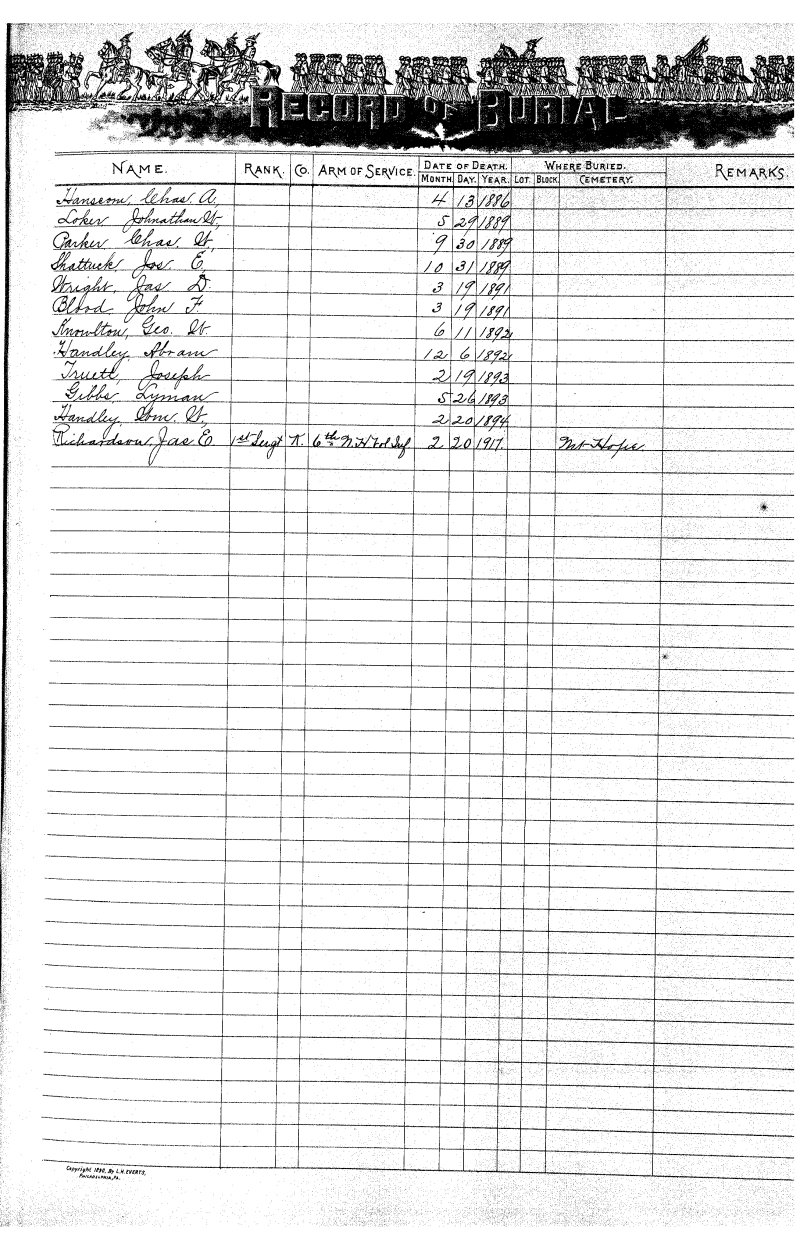 RECORD OF BURIAL
NAME. RANK. CO. ARM OF SERVICE. DATE OF DEATH. WHERE BURIED. REMARKS.
MONTH. DAY. YEAR. LOT. BLOCK. CEMETERY.
Hanscom, Chas. A. 4 13 1886
Loker Johnathan W, 5 29 1889
Parker Chas. W, 9 30 1889
Shattuck, Jos. E, 10 31 1889
Wright, Jas D. 3 19 1891
Blood John F. 3 19 1891
Knowlton, Geo. W. 6 11 1892
Handley, Abram 12 6 1892
Truett, Joseph 2 19 1893
Gibbs, Lyman 5 26 1893
Handley, Wm. W, 2 20 1894
Richardson, Jas E. 1st Sergt K. 6th N.H Vol Inf 2 20 1917. Mt Hope.
Copyright, 1890, By L.H. EVERTS,
PHILADELPHIA, PA.